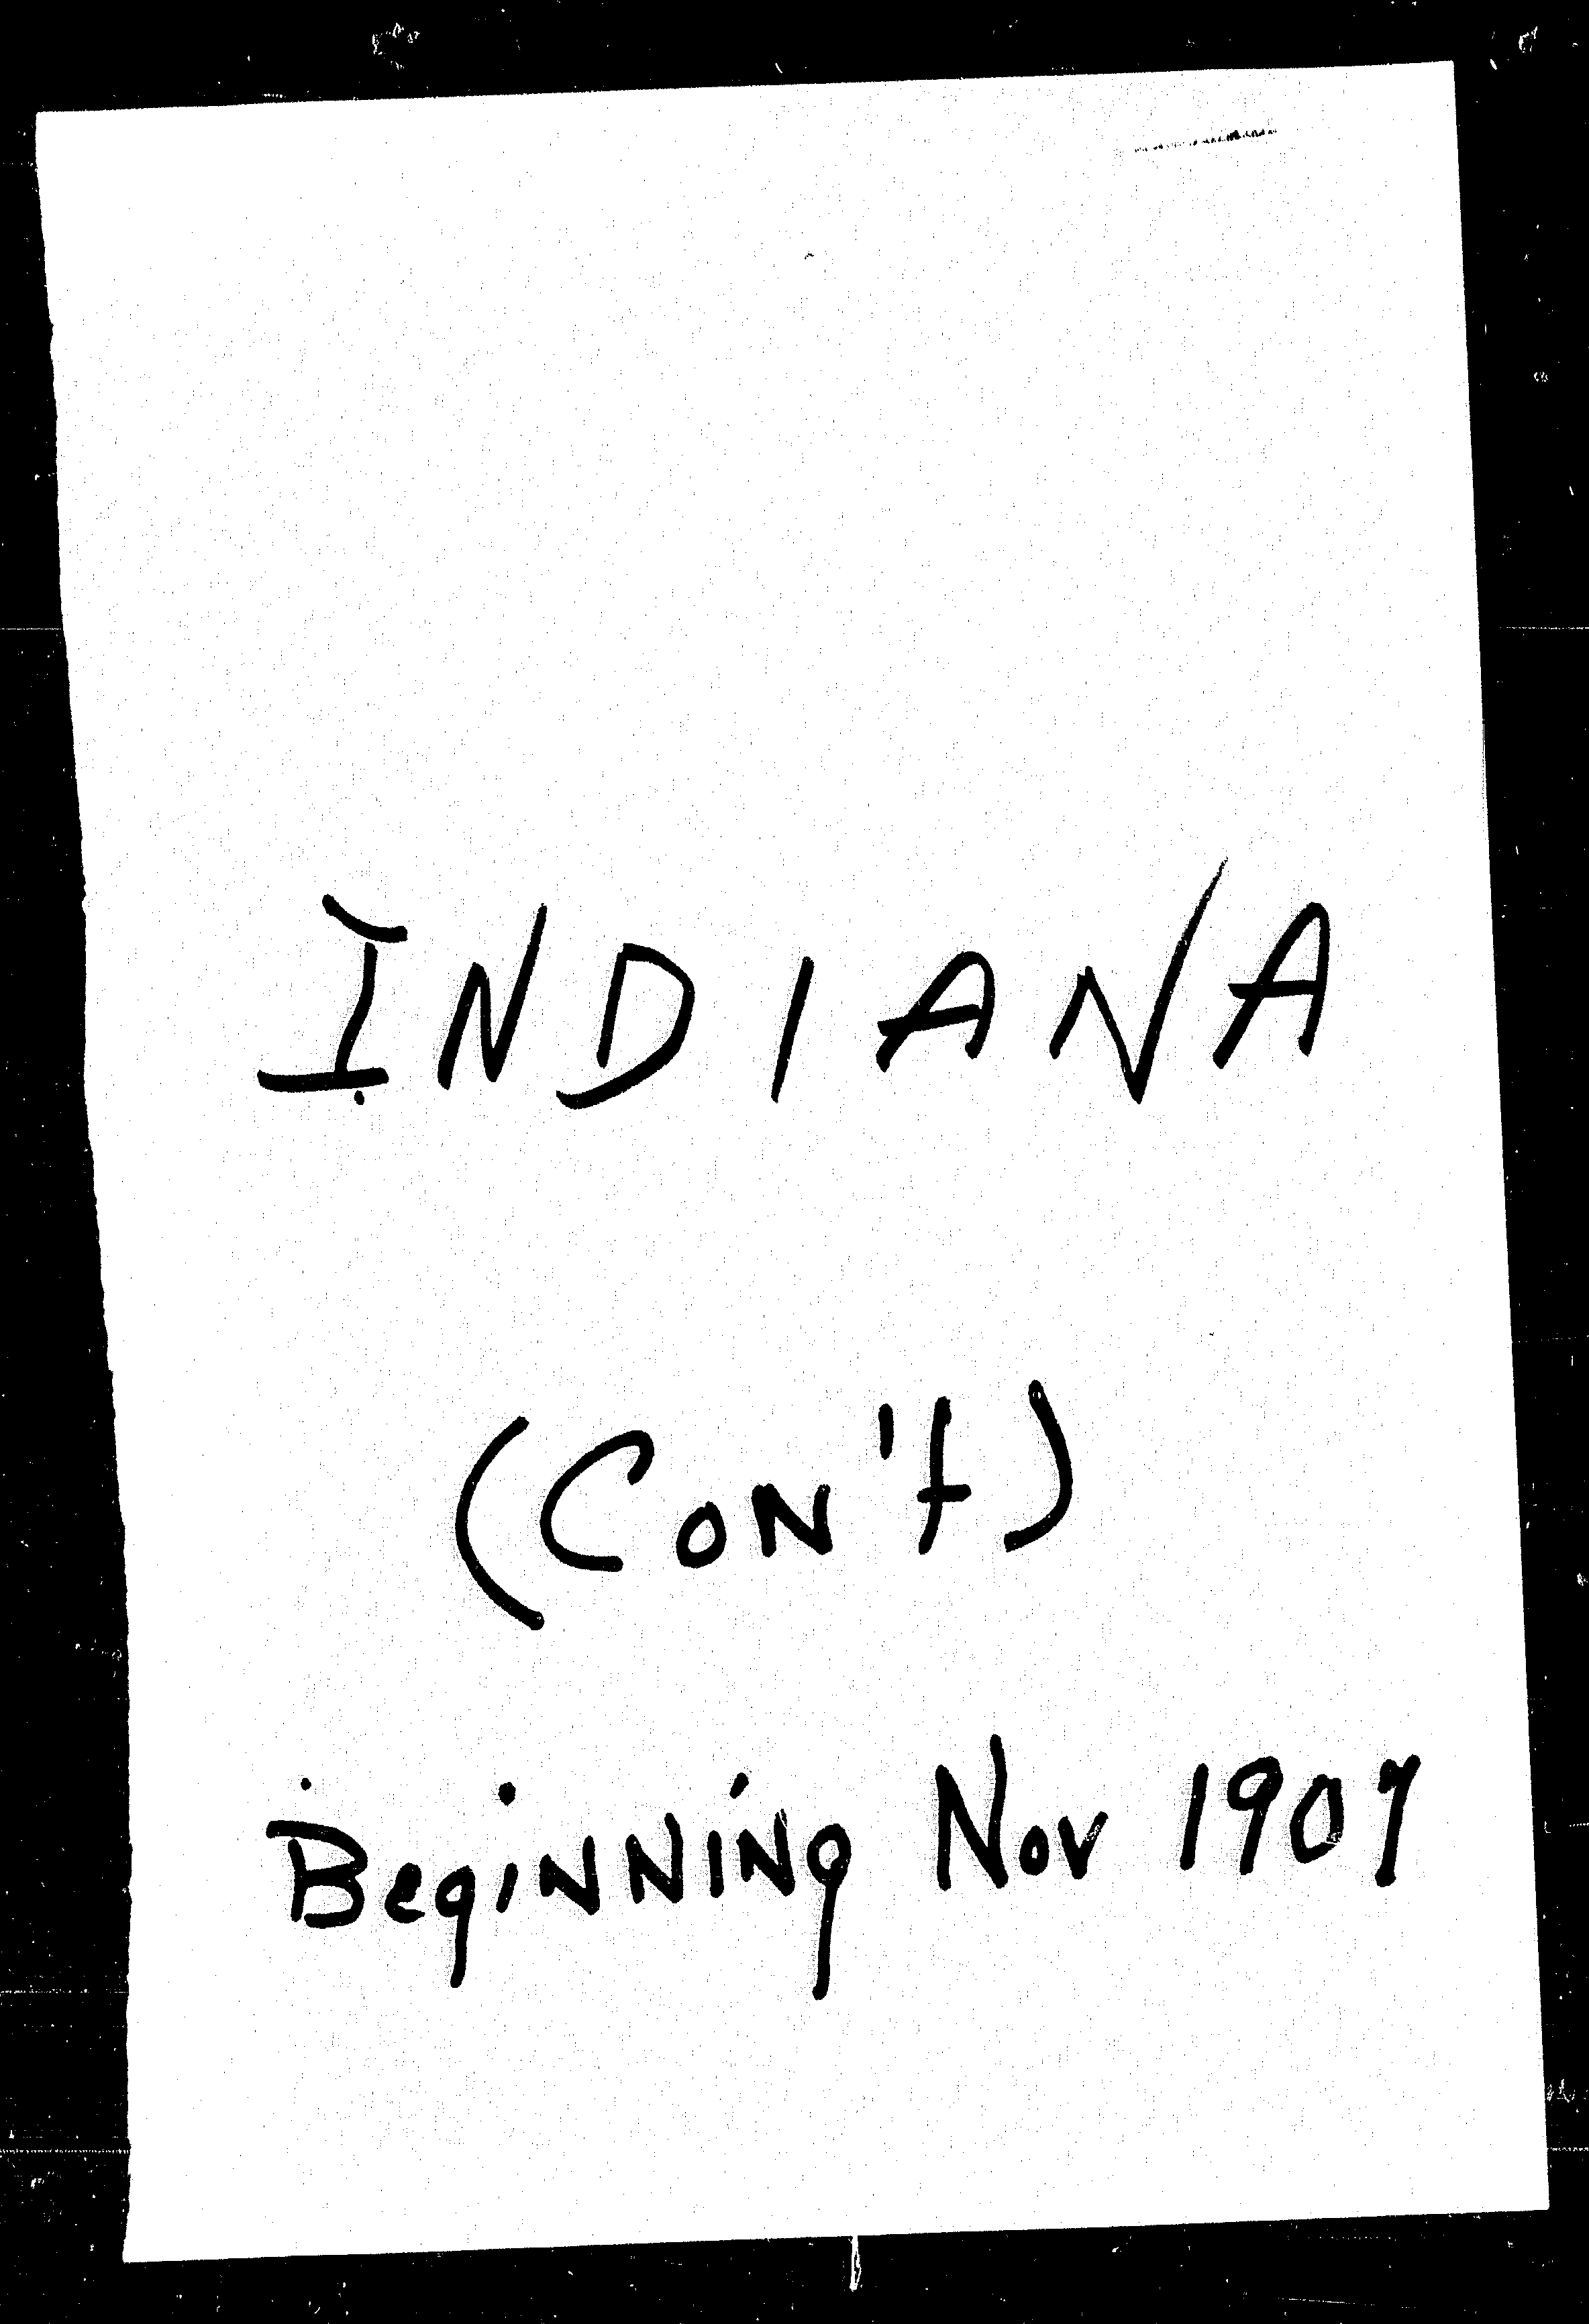 INDIANA
(CON't)
Beginning Nov 1907